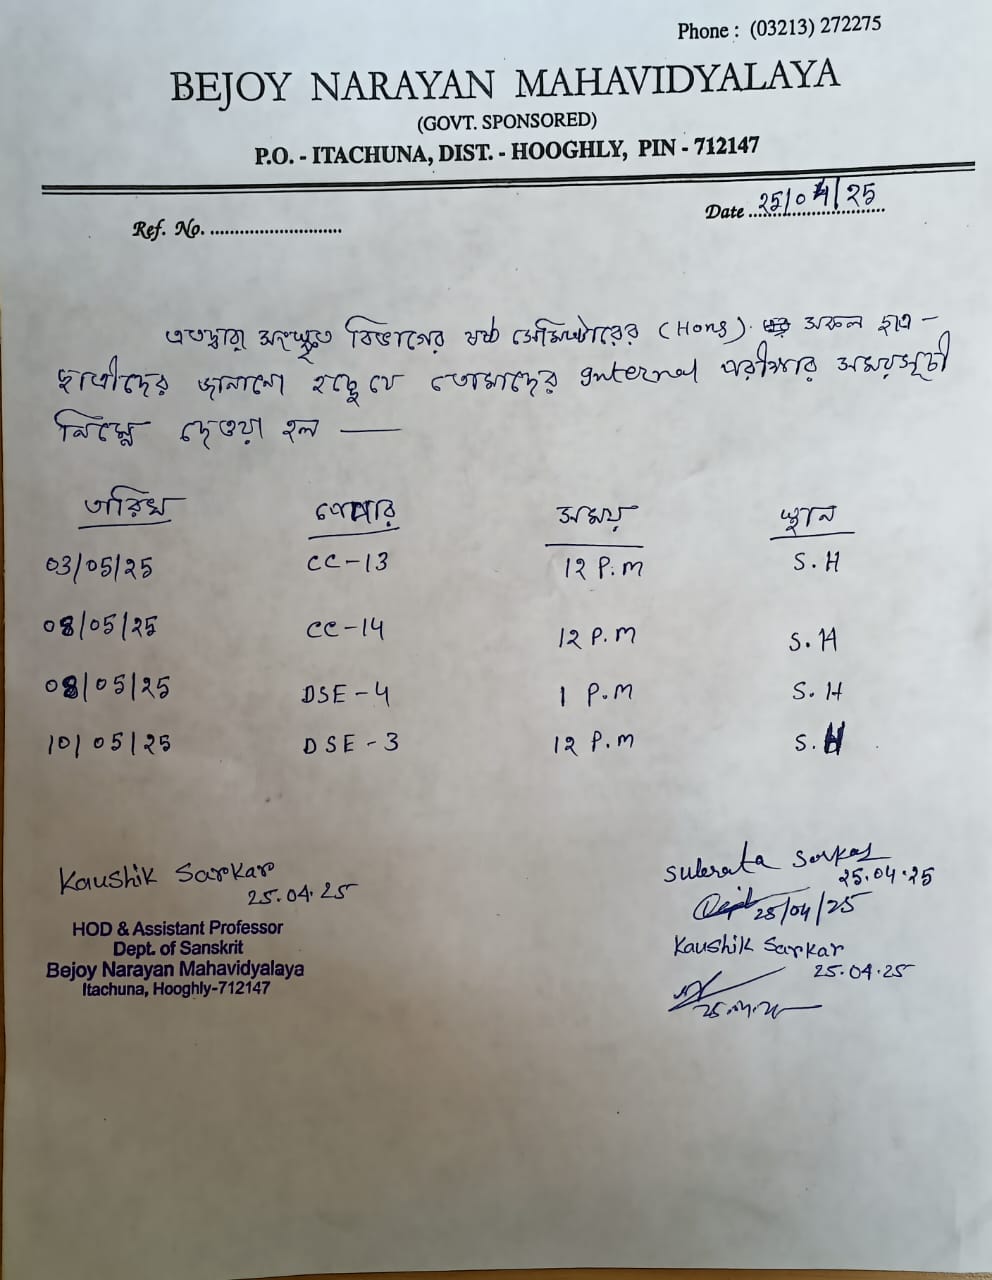 Phone : (03213) 272275
BEJOY NARAYAN MAHAVIDYALAYA
(GOVT. SPONSORED)
P.O. - ITACHUNA, DIST. - HOOGHLY, PIN - 712147
Ref. No. ............................
Date 25/04/25
এতদ্বারা সংস্কৃত বিভাগের ষষ্ঠ সেমিস্টারের (Hons). সকল ছাত্র-
ছাত্রীদের জানানো হচ্ছে যে তোমাদের Internal পরীক্ষার সময়সূচী
নিম্নে দেওয়া হল —
তারিখ পেপার সময় স্থান
03/05/25 CC-13 12 P.M S.H
08/05/25 CC-14 12 P.M S.H
08/05/25 DSE-4 1 P.M S.H
10/05/25 DSE-3 12 P.M S.H
Kaushik Sarkar
25.04.25
HOD & Assistant Professor
Dept. of Sanskrit
Bejoy Narayan Mahavidyalaya
Itachuna, Hooghly-712147
Sarkar
25.04.25
25/04/25
Kaushik Sarkar
25.04.25